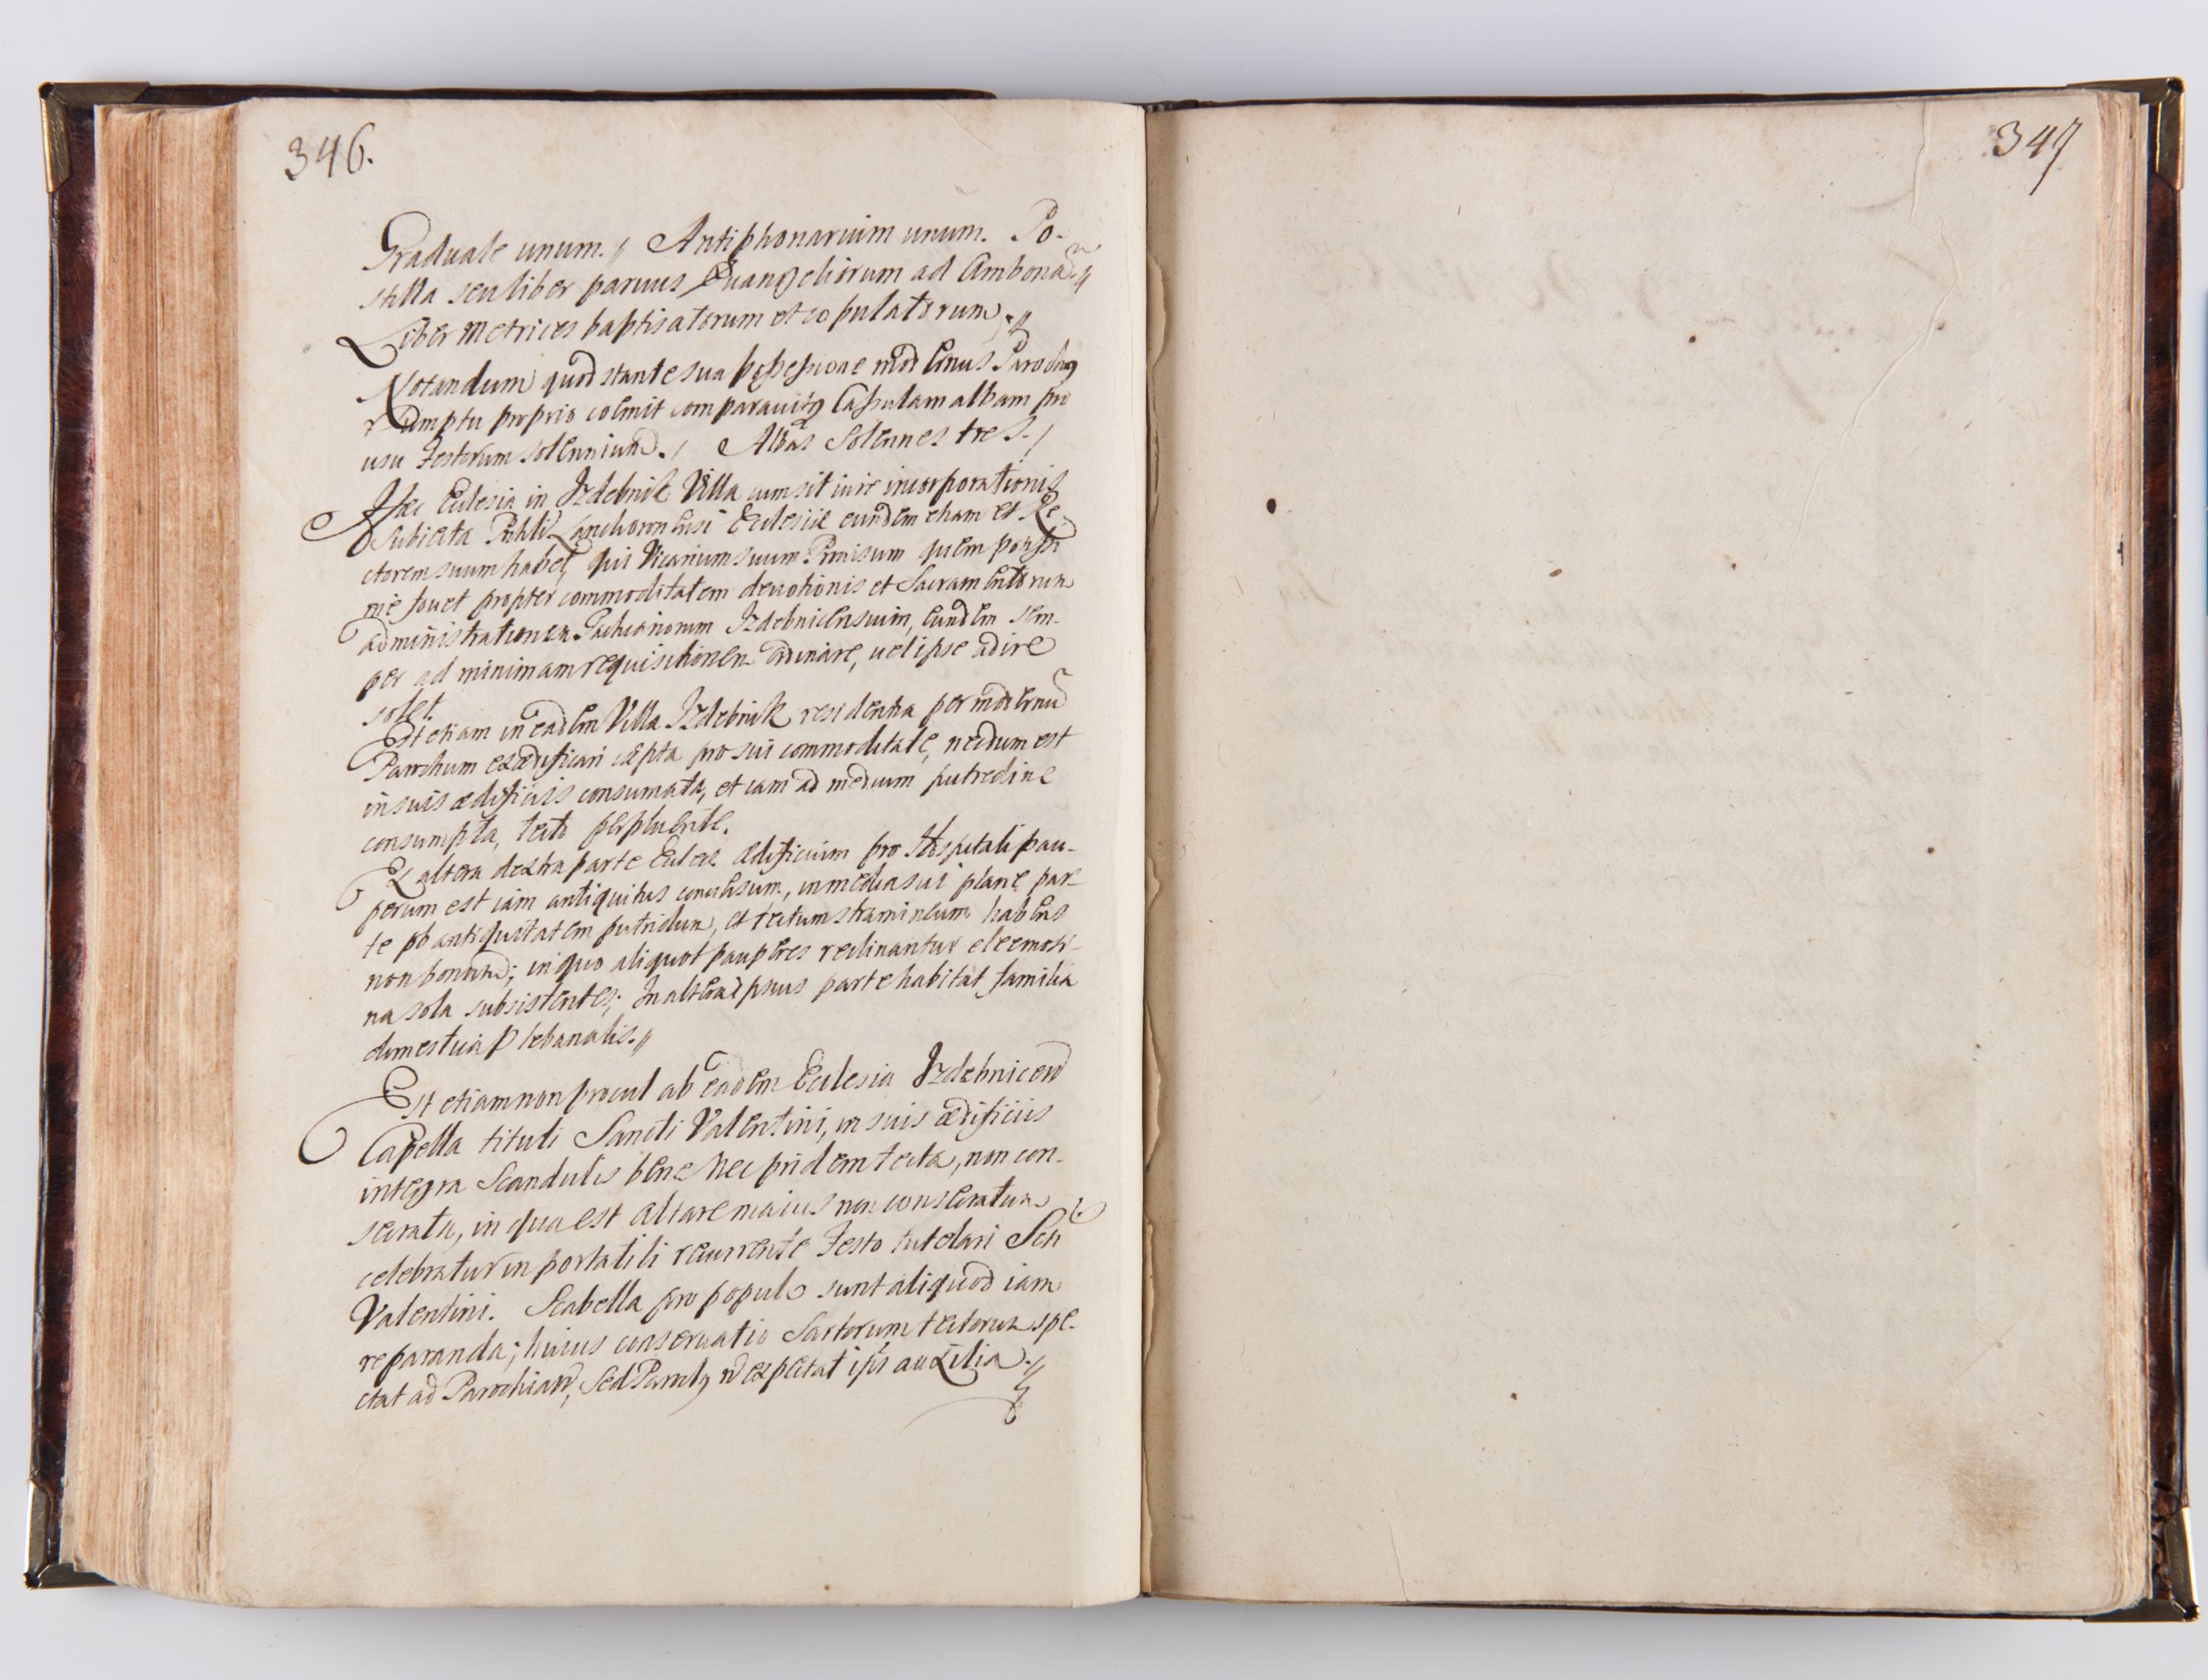 346.
Graduale unum.// Antiphonarium unum. Po-
stilla seu liber paruus Euangeliorum ad Ambonā.//
Liber Metrices baptisatorum et copulatorum.//
Notandum quod stante sua possessione modernus Parochus
sumptu proprio comparauit Casulam albam pro
usu Festorum solennium./ Albas Solennes tres./
Haec Ecclesia in Izdebnik Villa cum sit iure incorporationis
Subiecta Lanchoronensi Ecclesiæ eundem etiam et Re-
ctorem suum habet, qui Vicarium suum quem
fouet propter commoditatem deuotionis et Sacramentorum
administrationem Izdebnicensium, eundem sem-
per ad minimam requisitionem ordinare, uel ipse adire
solet.
Est etiam in eadem Villa Izdebnik residentia per modernū
Parochum exædificari cæpta pro sui commoditate, necdum est
in suis ædificiis consumata, et iam ad medium putredine
consumpta, tecto perpluente.
Ex altera dextra parte Eccleæ ædificium pro Hospitali pau-
perum est iam antiquitus , in media sui plane par-
te ob antiquitatem putridum, et tectum stramineum habens
non bonum; in quo aliquot pauperes reclinantur eleemosi-
na sola subsistentes; In altera ipsius parte habitat familia
domestica plebanalis.//
Est etiam non procul ab eadem Ecclesia Izdebnicen
Capella tituli Sancti Valentini, in suis ædificiis
integra Scandulis bene nec pridem tecta, non con-
secrata, in qua est altare maius non consecratum
celebratur in portatili recurrente Festo tutelari Scti
Valentini. Scabella pro populo sunt aliquod iam
reparanda; huius conseruatio Sartorum tectorum spe-
ctat ad Parochiam, sed expectat auxilia.//
347